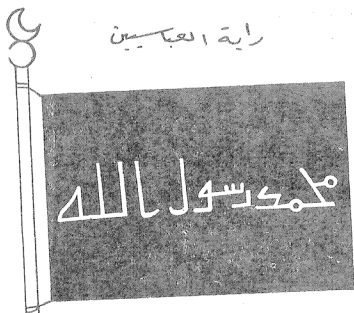 راية العباسيين
محمد رسول الله